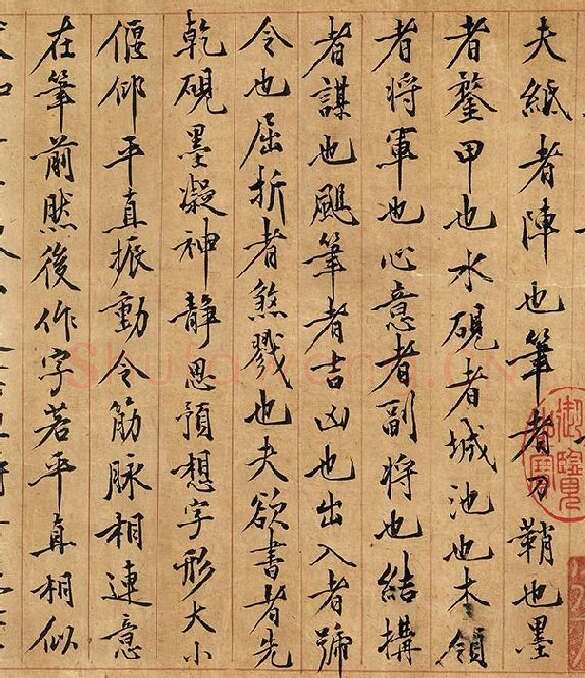 夫紙者陣也筆者刀鞘也墨
者鍪甲也水硯者城池也本領
者將軍也心意者副將也結搆
者謀也颺筆者吉凶也出入者號
令也屈折者煞戮也夫欲書者先
乾硯墨凝神静思預想字形大小
偃仰平直振動令筋脉相連意
在筆前然後作字若平直相似
御覽